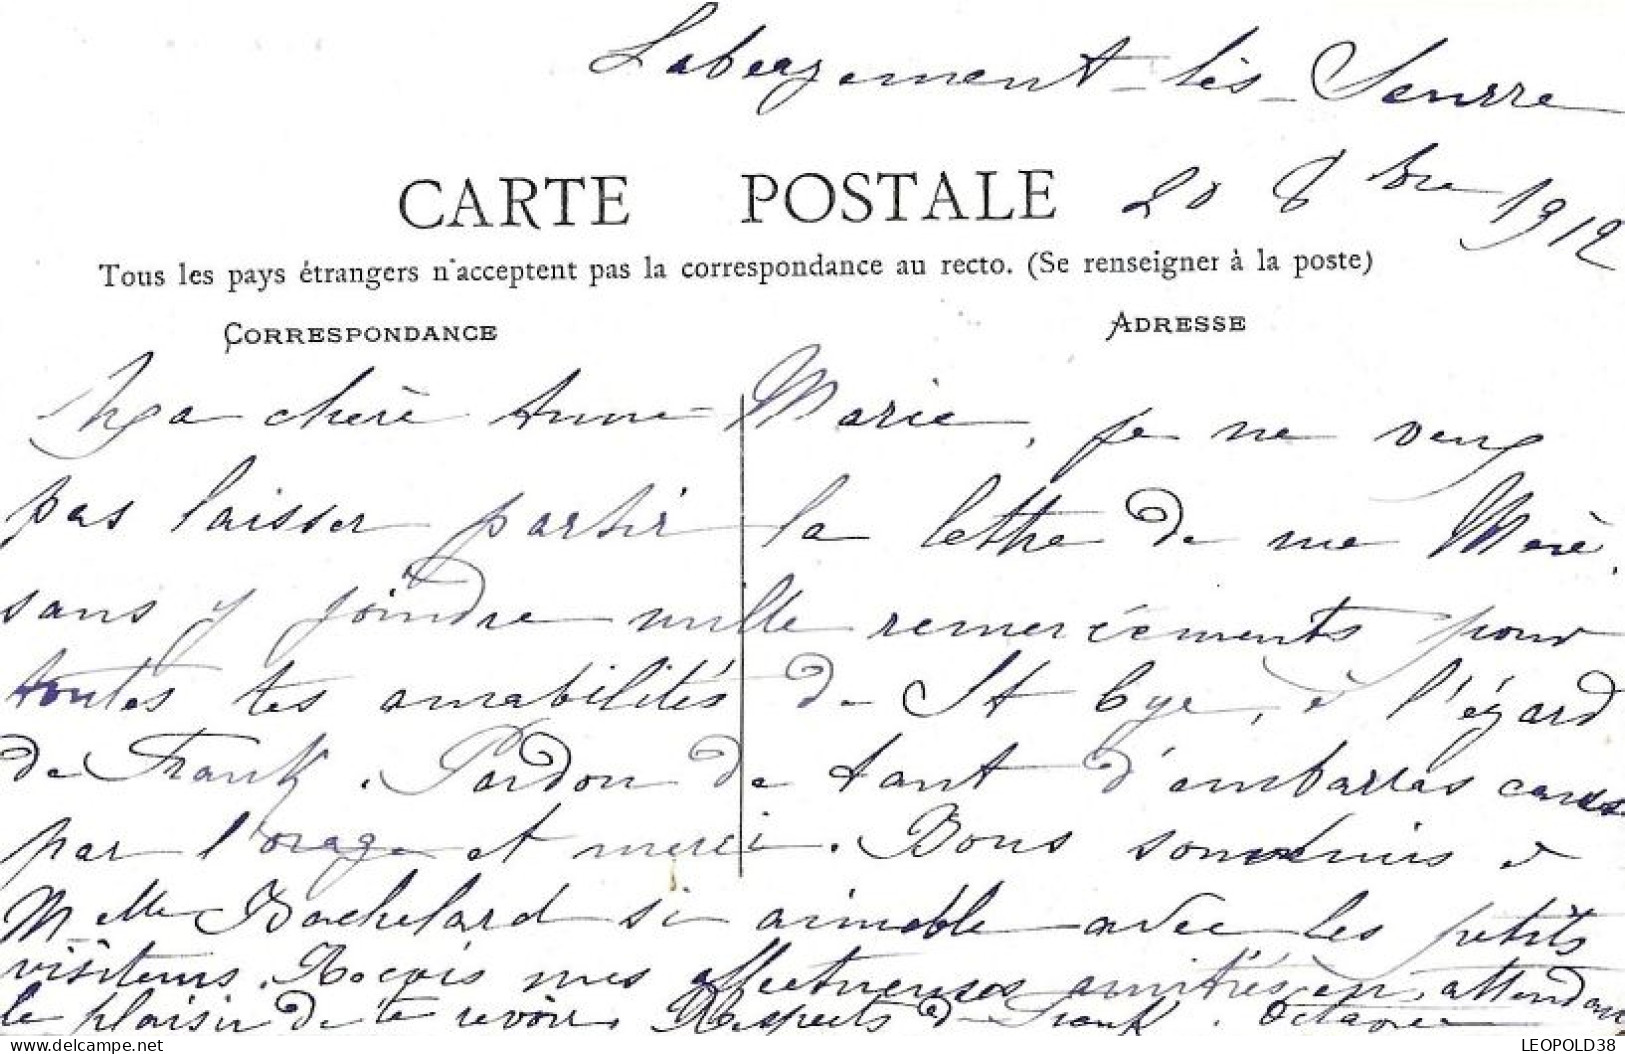 Labergement-lès-Seurre
CARTE POSTALE
20 8bre 1912
Tous les pays étrangers n'acceptent pas la correspondance au recto. (Se renseigner à la poste)
CORRESPONDANCE
ADRESSE
Ma chère Anne-Marie, je ne veux
pas laisser partir la lettre de ma Mère,
sans y joindre mille remerciements pour
toutes tes amabilités de St Cyr, à l'égard
de Frank. Pardon de tant d'embarras causés
par l'orage et merci. Bons souvenirs à
Melle Bachelard si aimable avec les petits
visiteurs. Reçois mes affectueuses amitiés en attendant
le plaisir de te revoir. Respects de Frank. Octavie
LEOPOLD38